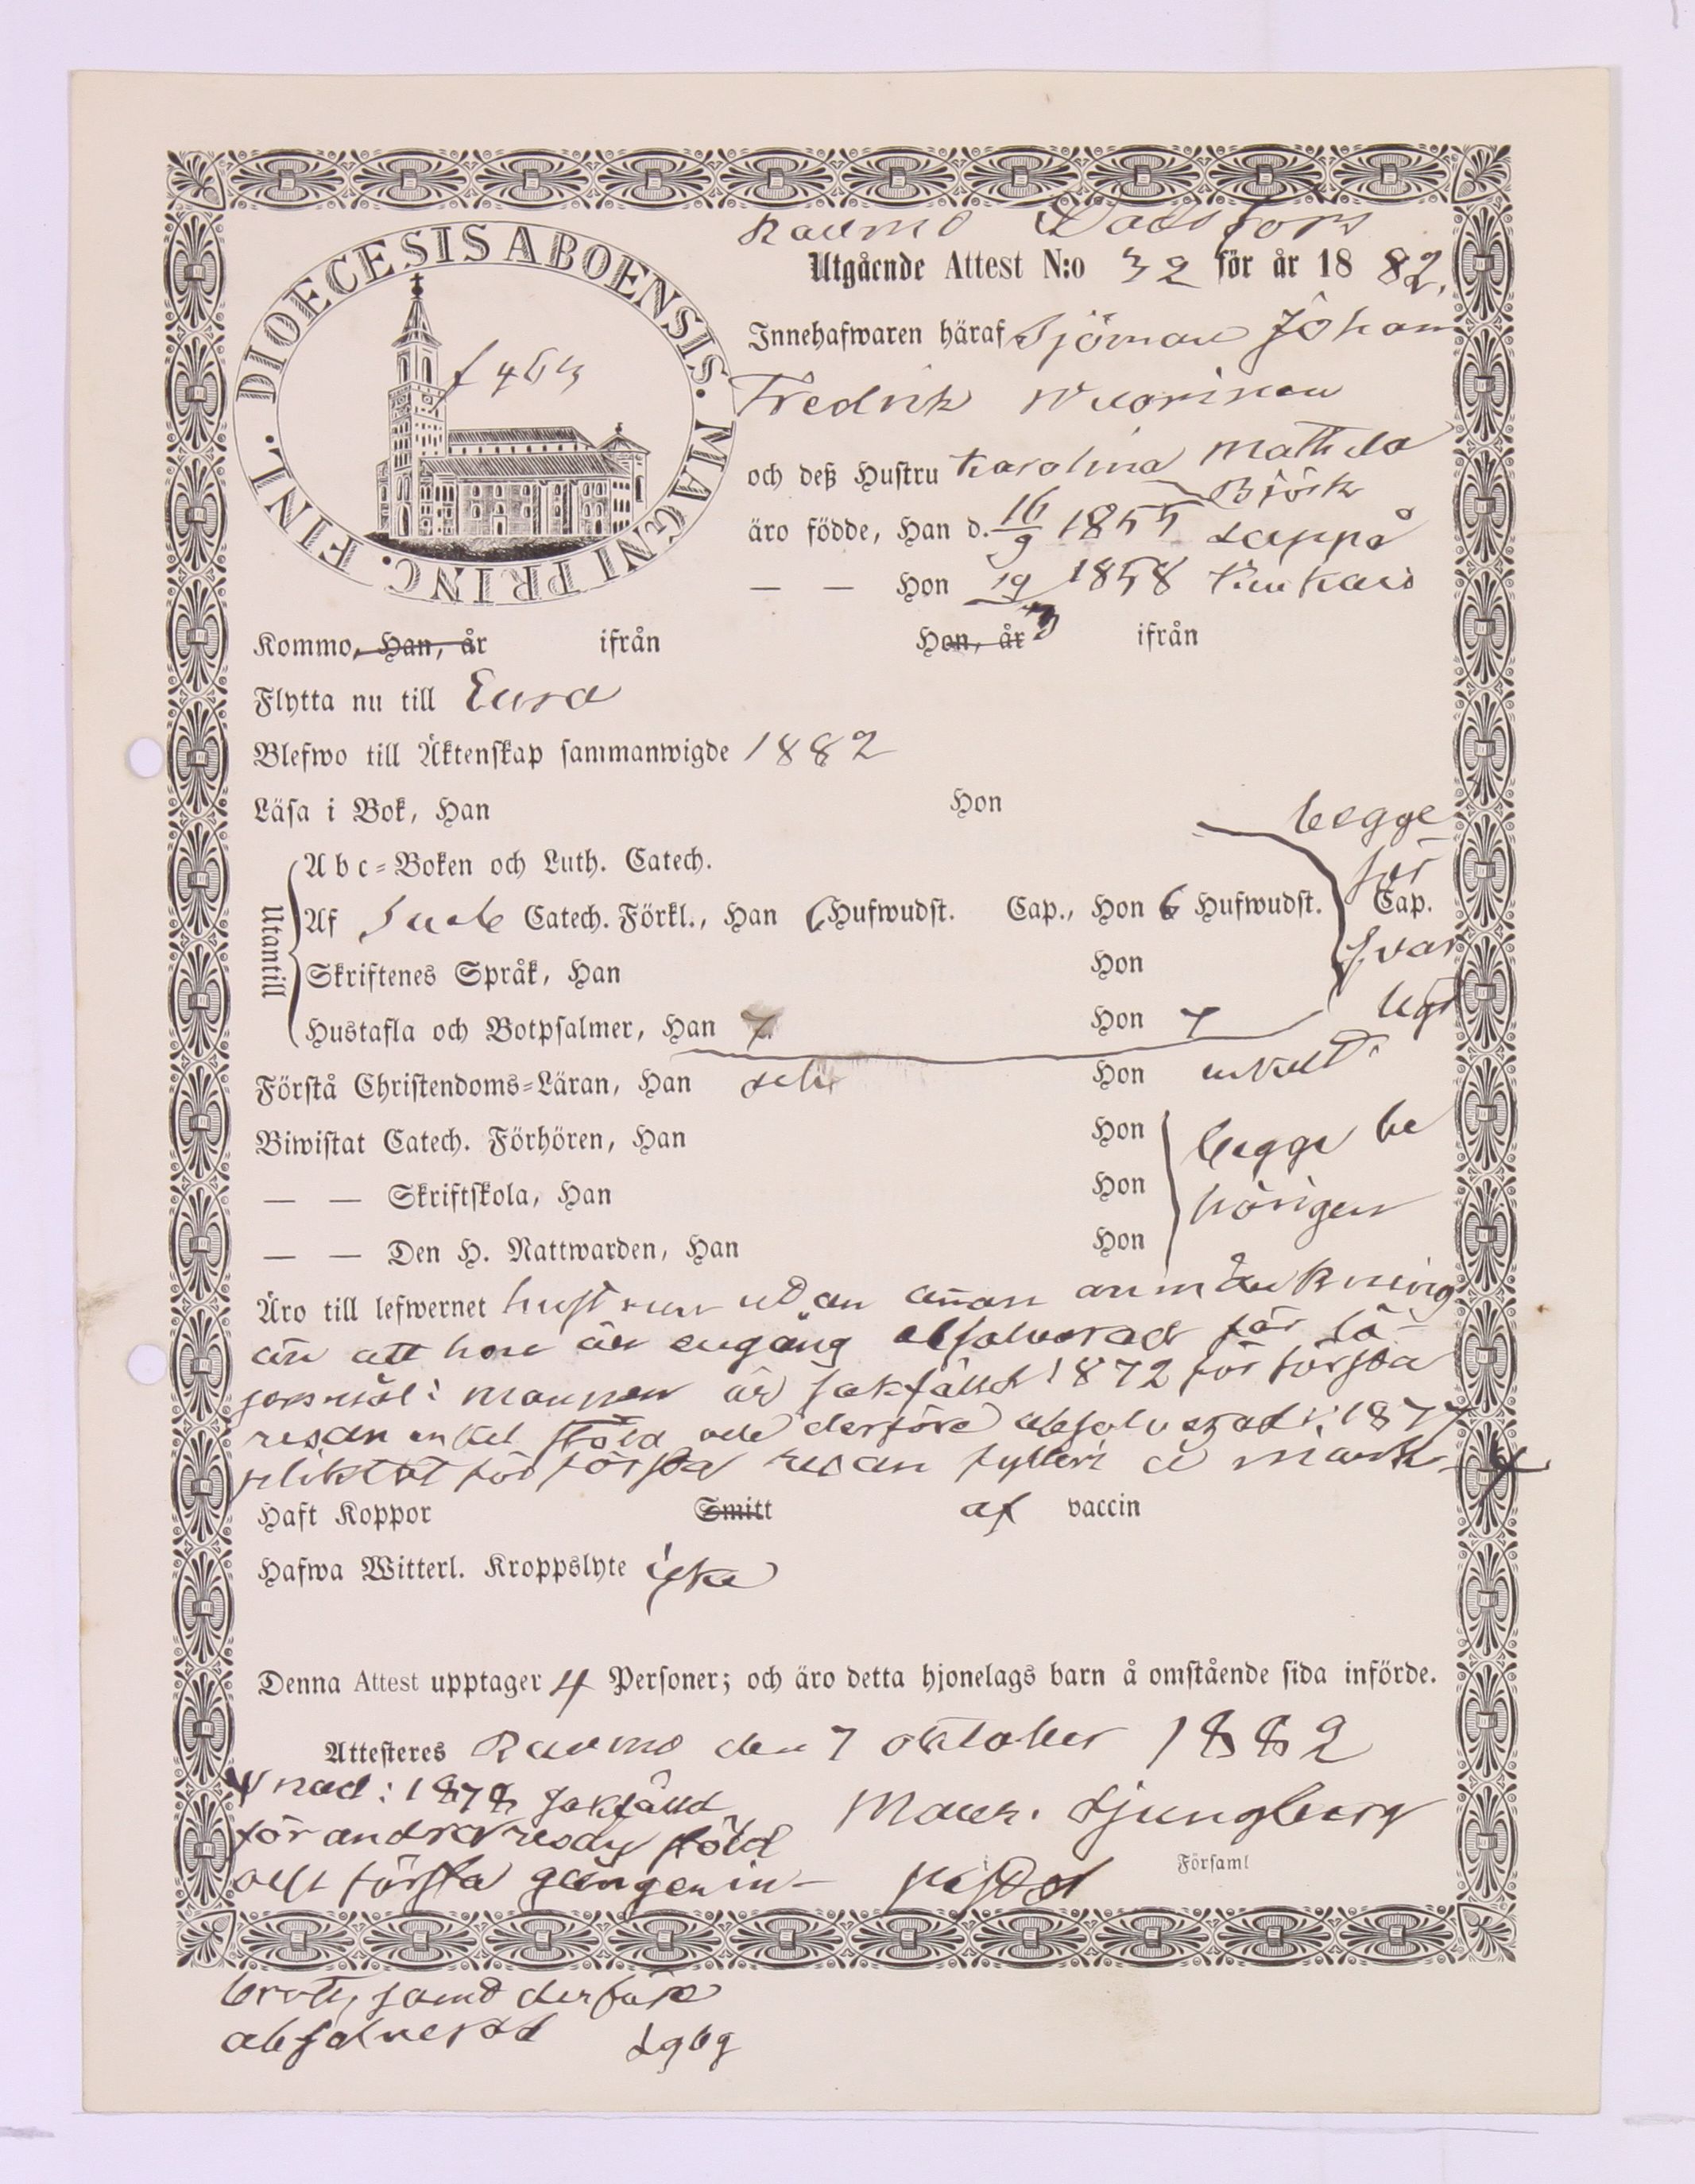 DIOECESIS ABOENSIS. MAGNI PRINC. FINL.
Raumo
Utgående Attest N:o 32 för år 1882.
Innehafwaren häraf Sjöman Johan
Fredrik Wuorinen
och deß Hustru Karolina Mathilda
Björk
äro födde, Han d. 16/9 1855 Lappo
— — Hon 19 1858 Kiukais
Kommo, Han, år ifrån Hon, år ifrån
Flytta nu till Eura
Blefwo till Äktenskap sammanwigde 1882
Läsa i Bok, Han Hon begge
Abc-Boken och Luth. Catech. för
Utantill
Af Catech. Förkl., Han 6 Hufwudst. Cap., Hon 6 Hufwudst. Cap.
Skriftenes Språk, Han Hon svar
Hustafla och Botpsalmer, Han 7. Hon 7 ligt
Förstå Christendoms-Läran, Han Hon enkelt
Biwistat Catech. Förhören, Han Hon begge be
— — Skriftskola, Han Hon hörigen
— — Den H. Nattwarden, Han Hon
Äro till lefwernet hustrun utan annan anmärkning
än att hon är engång absolverad för lä-
gersmål: mannen är sakfälld 1872 för första
resan enkel stöld och derföre absolverad: 1877
pliktat för första resan fylleri å mark-
Haft Koppor Smitt af vaccin
Hafwa Witterl. Kroppslyte icke
Denna Attest upptager 4 Personer; och äro detta hjonelags barn å omstående sida införde.
Attesteres Raumo den 7 oktober 1882
nad: 1878 sakfälld Maur. Ljungberg
för andra resan stöld
och första gången in- i Församl
brott, samt derföre
absolverad Lgbg